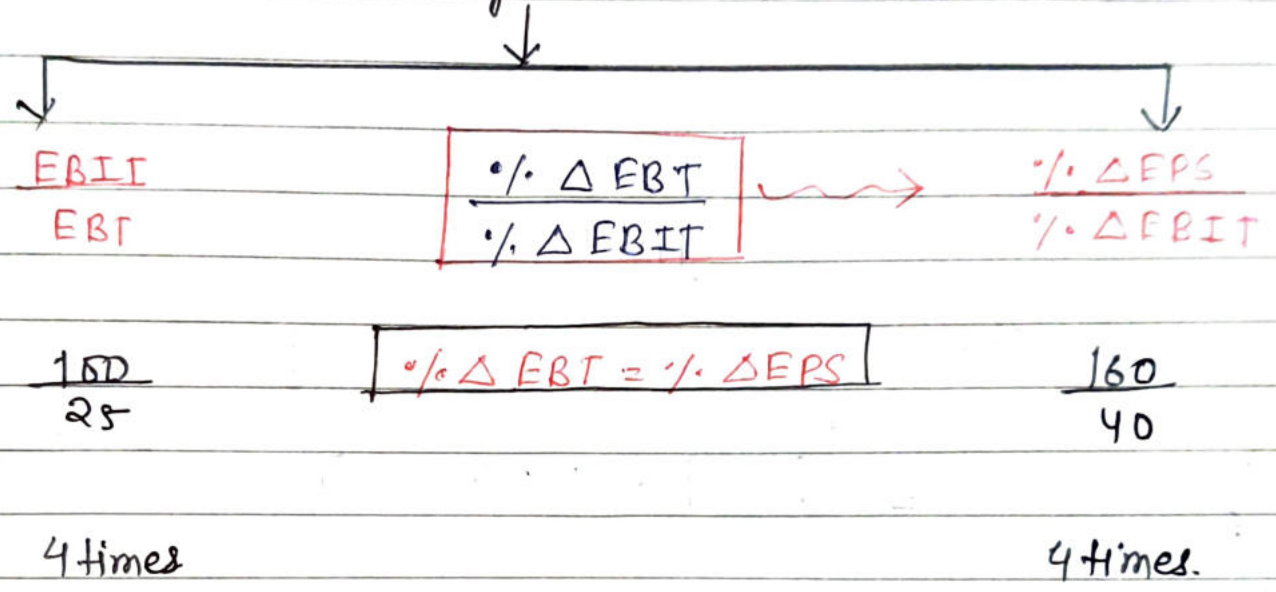 EBIT
EBT
% Δ EBT
% Δ EBIT
% Δ EPS
% Δ EBIT
100
25
% Δ EBT = % Δ EPS
160
40
4 times
4 times.